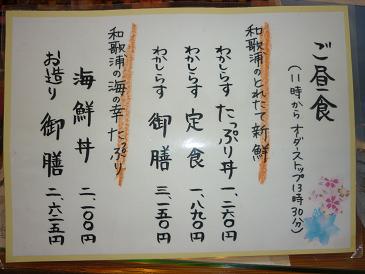 ご昼食
(11時からオーダーストップ13時30分)
和歌浦のとれたて新鮮
わかしらす たっぷり丼 一、二六〇円
わかしらす 定食 一、八九〇円
わかしらす 御膳 三、一五〇円
和歌浦の海の幸たっぷり
海鮮丼 二、一〇〇円
お造り 御膳 二、六二五円